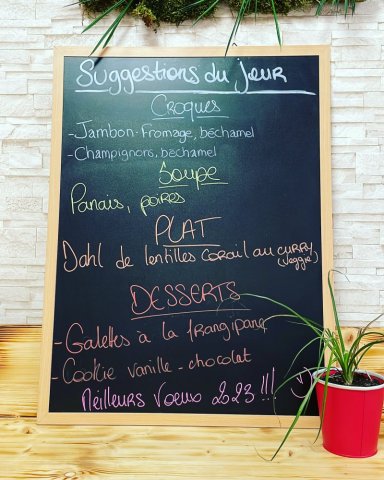 Suggestions du jour
Croques
- Jambon-Fromage, béchamel
- Champignons, béchamel
Soupe
Panais, poires
PLAT
Dahl de lentilles corail au curry (veggie)
DESSERTS
- Galettes à la frangipane
- Cookie vanille - chocolat
Meilleurs Voeux 2023 !!! :)